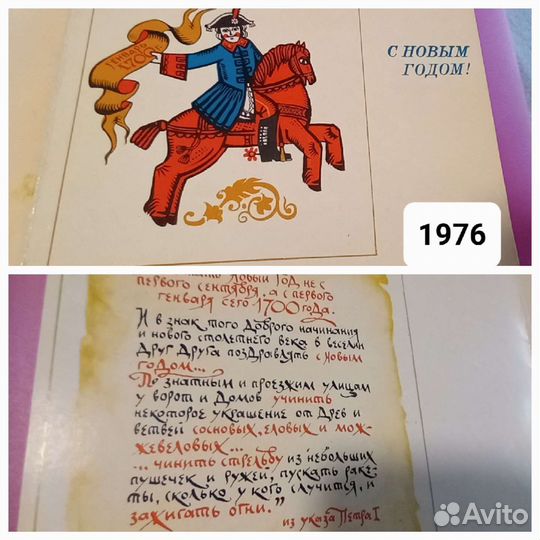 ГЕНВАРЬ
1700
С НОВЫМ
ГОДОМ!
1976
новый год, не с
первого сентября, а с первого
генваря сего 1700 года.
И в знак того доброго начинания
и нового столетнего века в веселии
друг друга поздравлять с новым
годом...
По знатным и проезжим улицам
у ворот и домов учинить
некоторое украшение от древ и
ветвей сосновых, еловых и мож-
жевеловых...
... чинить стрельбу из небольших
пушечек и ружей, пускать раке-
ты, сколько у кого случится, и
зажигать огни."
из указа Петра I
Avito